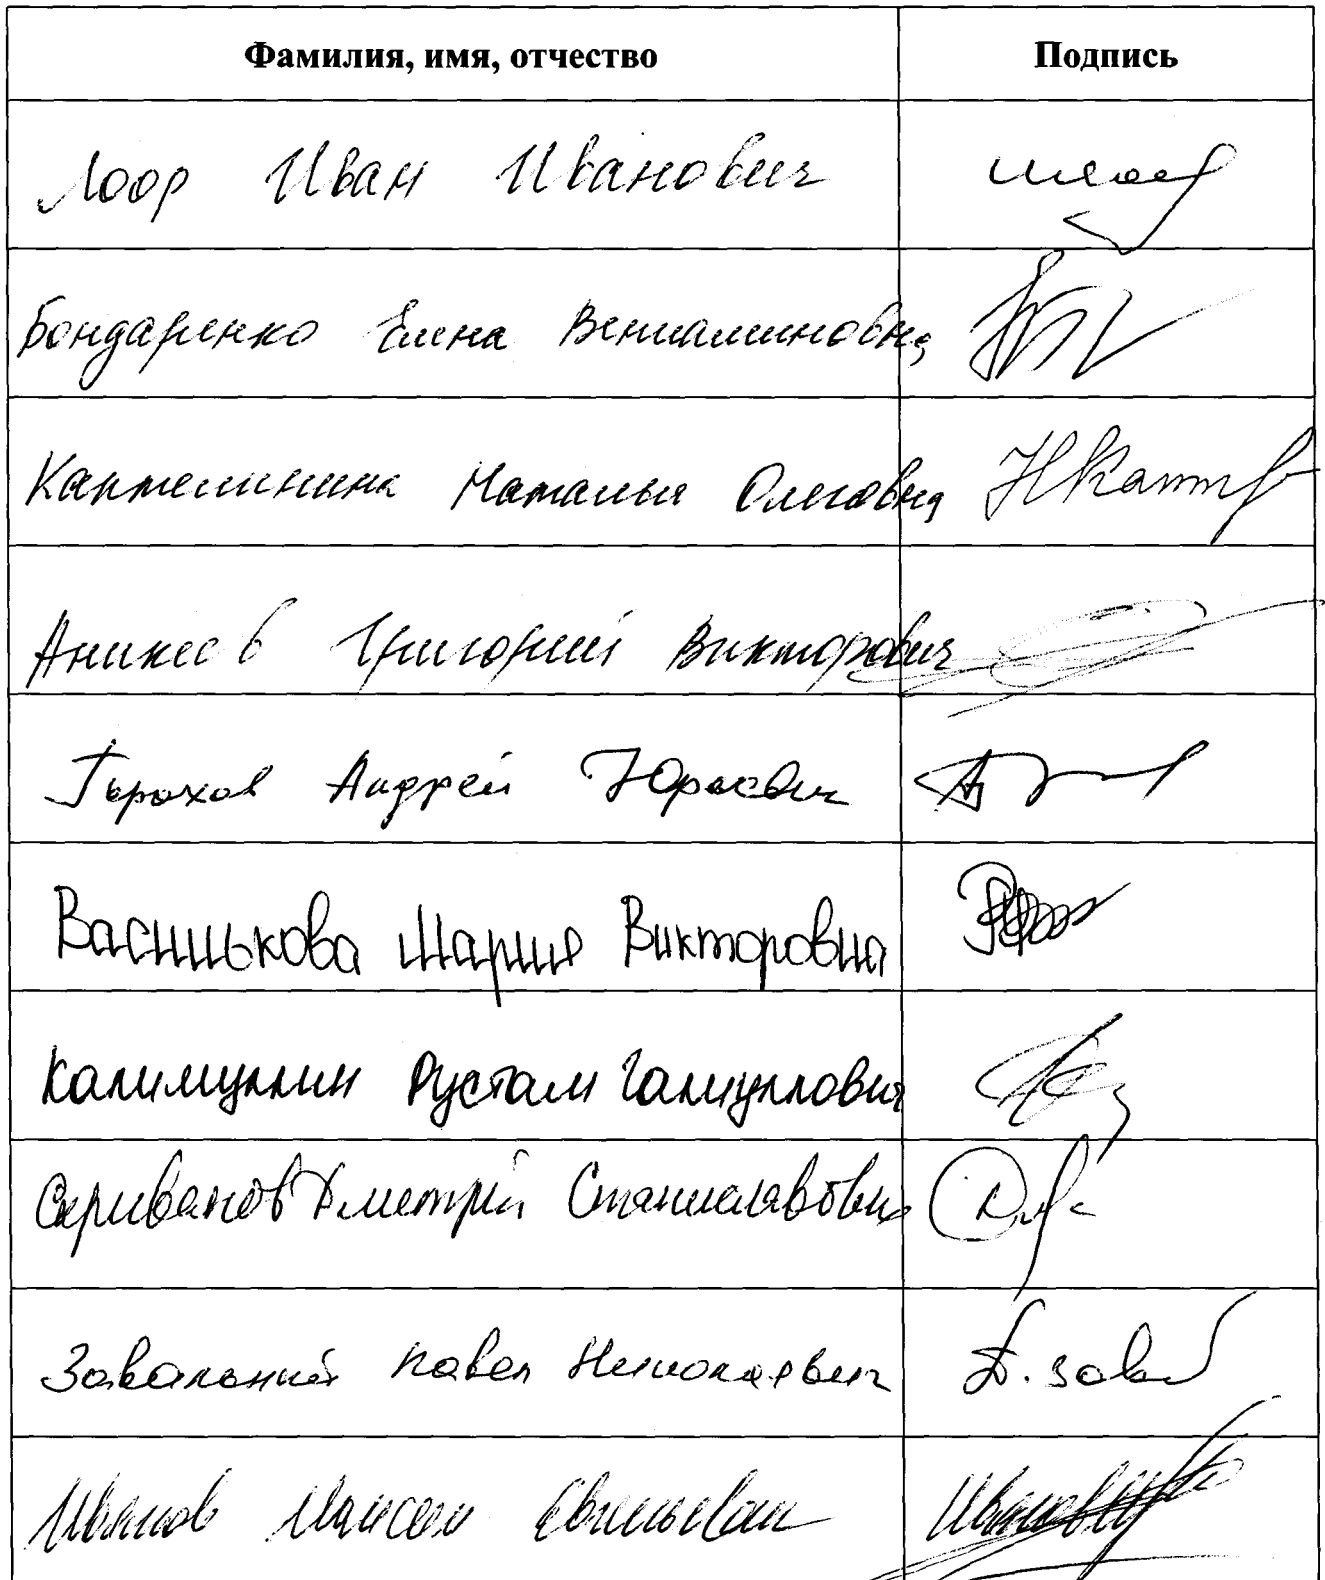 Фамилия, имя, отчество Подпись
Лоор Иван Иванович
Бондаренко Елена Вениаминовна
Каптелинина Наталья Олеговна
Аникеев Григорий Викторович
Горохов Андрей Юрьевич
Васинькова Мария Викторовна
Калимуллин Рустам Галиуллович
Скриванов Дмитрий Станиславович
Завальный Павел Николаевич П. Зав
Иванов Максим Евгеньевич